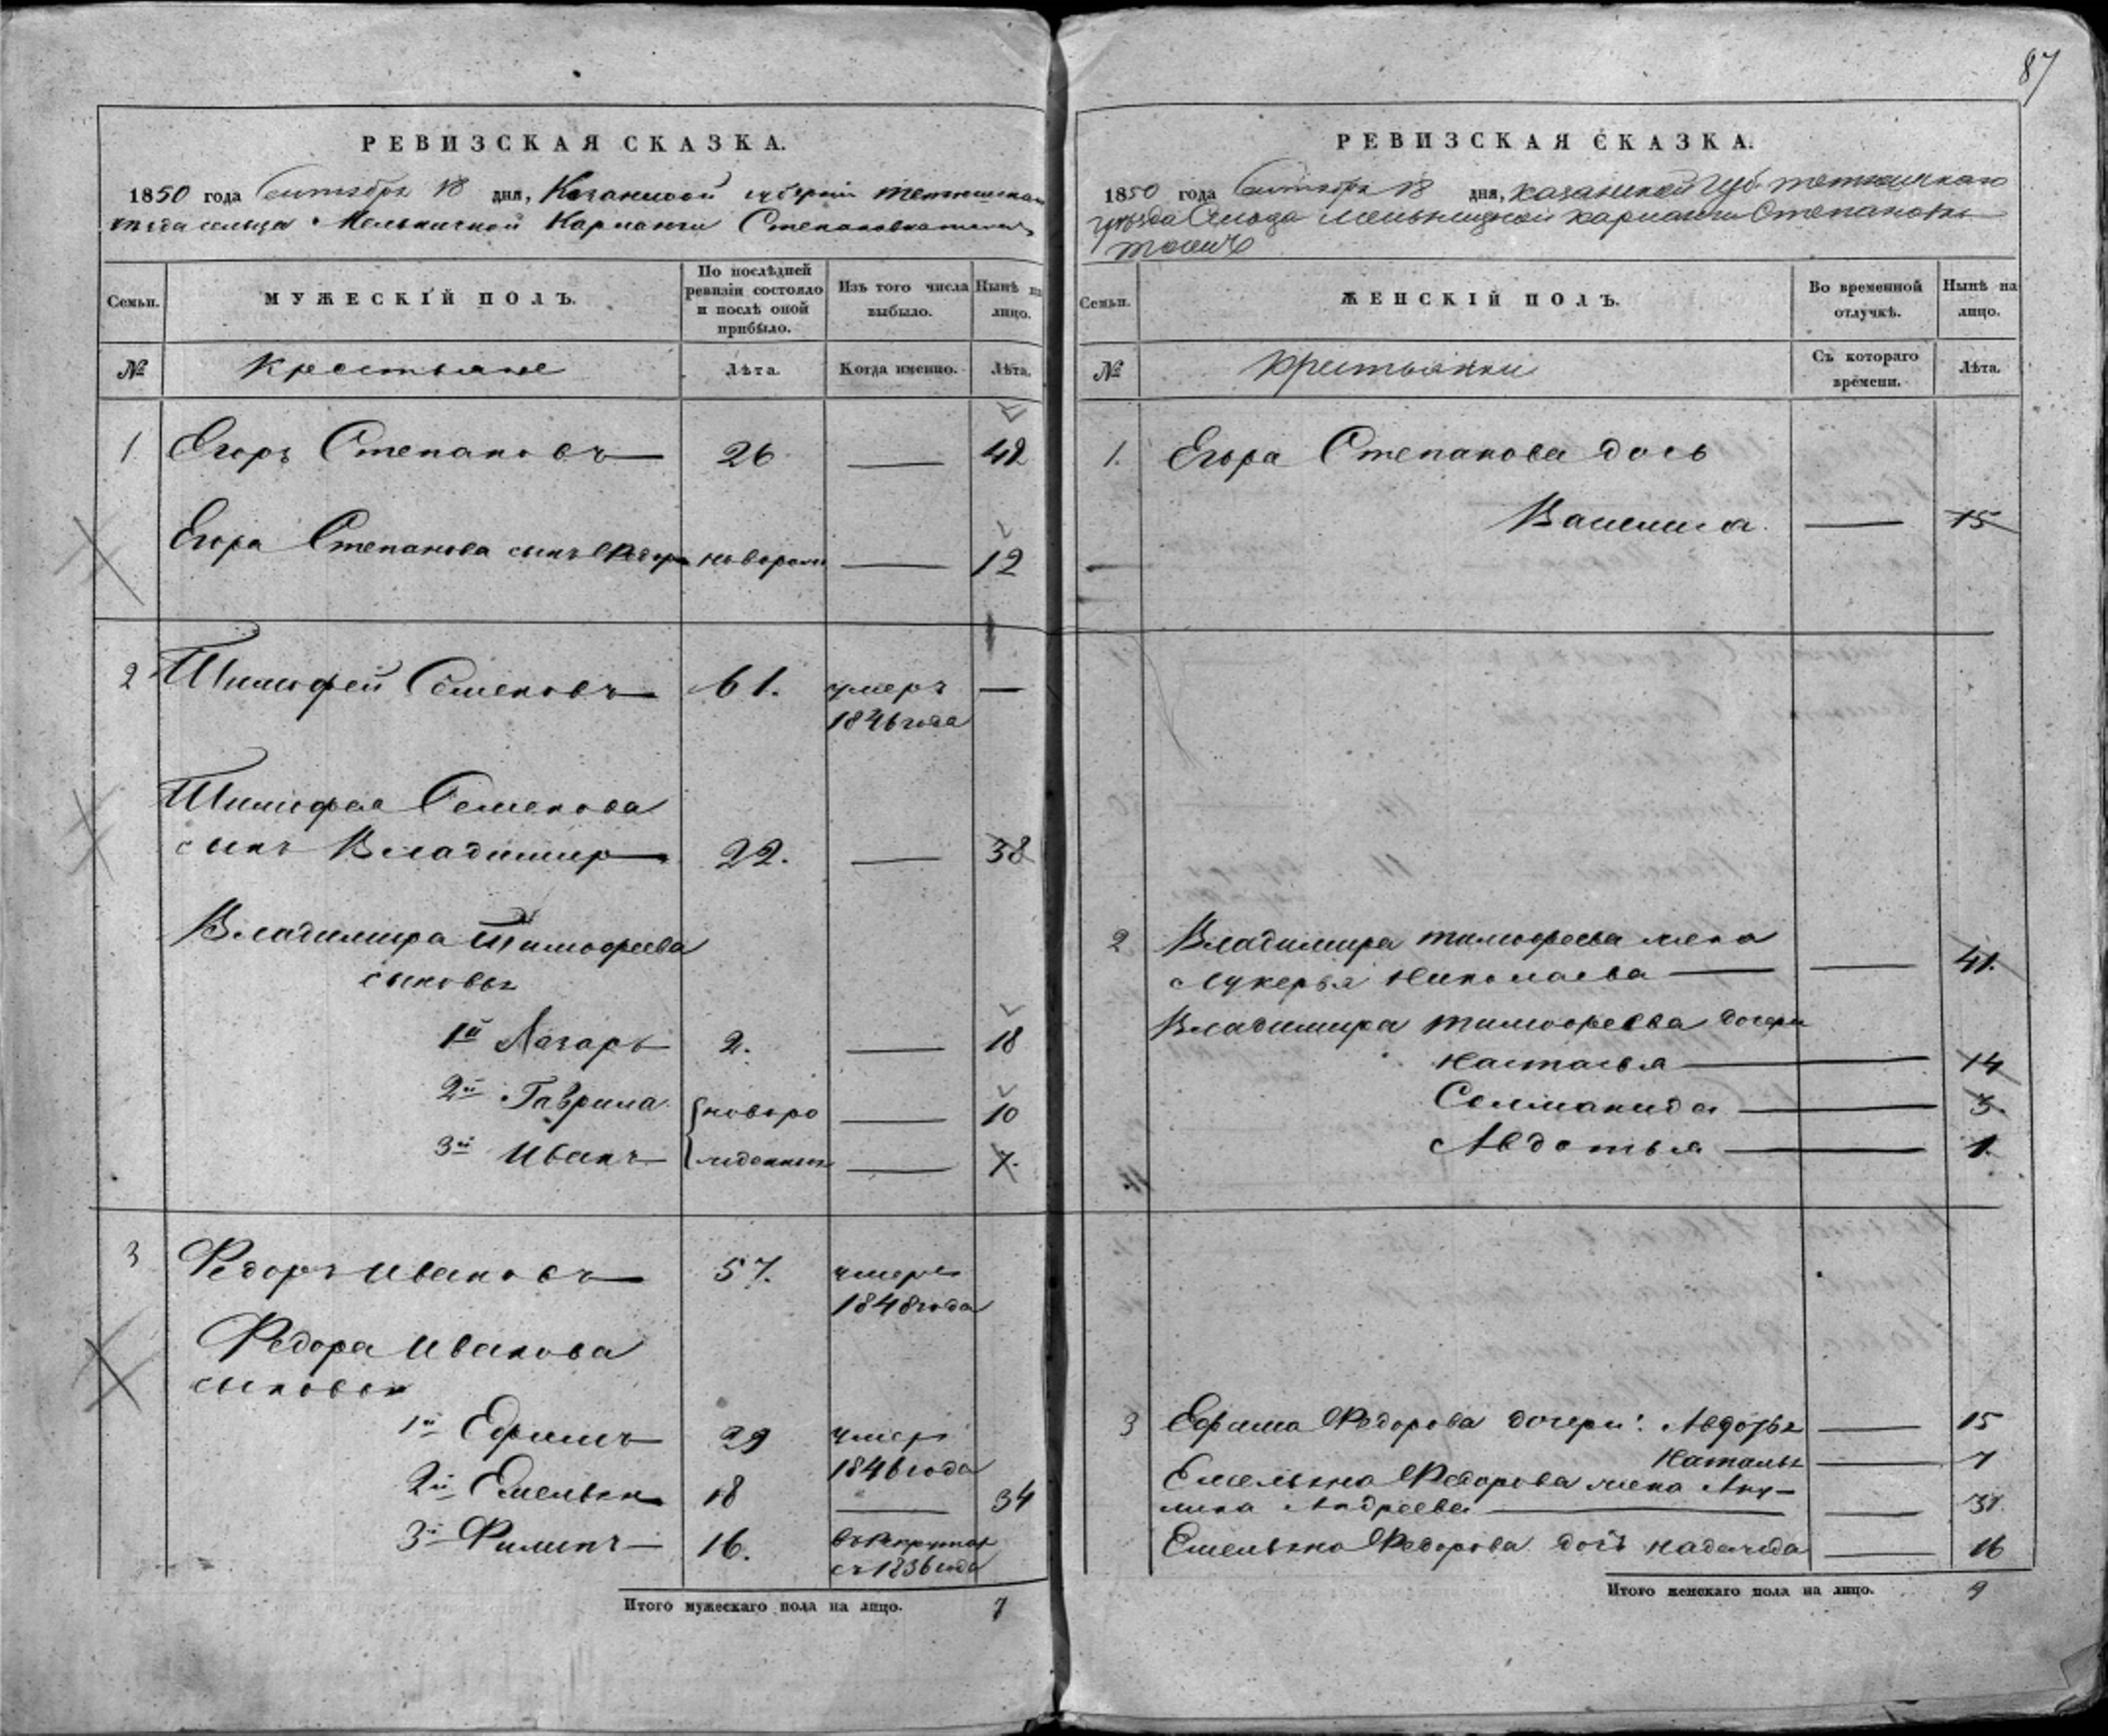 87
РЕВИЗСКАЯ СКАЗКА.
1850 года Сентября 18 дня, Казанской губернии Тетюшскаго
уезда сельца Мельничной Кармалки Степановка тожъ
Семьи. МУЖЕСКІЙ ПОЛЪ. По послѣдней ревизіи состояло и послѣ оной прибыло. Изъ того числа выбыло. Нынѣ на лицо.
№ Крестьяне Лѣта. Когда именно. Лѣта.
1 Егоръ Степановъ 26 — 42
Егора Степанова сынъ Федоръ новорож — 12
2 Тимофей Семеновъ 61. умеръ —
1846 года
Тимофея Семенова
сынъ Владимиръ 22. — 38
Владимира Тимофеева
сыновья
1й Лазарь 2. — 18
2й Гаврила новоро — 10
3й Иванъ жденныя — 7.
3 Федоръ Ивановъ 57. умеръ
1848 года
Федора Иванова
сыновья
1й Ефимъ 29 умеръ
1846 года
2й Емельян 18 — 34
3й Филипъ 16. въ рекрутах
съ 1836 года
Итого мужескаго пола на лицо. 7
РЕВИЗСКАЯ СКАЗКА.
1850 года Сентября 18 дня, Казанской губ. тетюшскаго
уѣзда Сельца мельничной кармалки Степановка
тожъ
Семьи. ЖЕНСКІЙ ПОЛЪ. Во временной отлучкѣ. Нынѣ на лицо.
№ Крестьянки Съ котораго времени. Лѣта.
1. Егора Степанова дочь
Василиса. — 15
2 Владимира тимофеева жена
Лукерья Николаева — — 41.
Владимира тимофеева дочери
Настасья — 14
Солманида — 3.
Авдотья — 1.
3 Ефима Федорова дочери: Авдотья — 15
Наталья — 7
Емельяна Федорова жена Аку-
лина Андреева — — 31
Емельяна Федорова дочь надежда — 16
Итого женскаго пола на лицо. 9